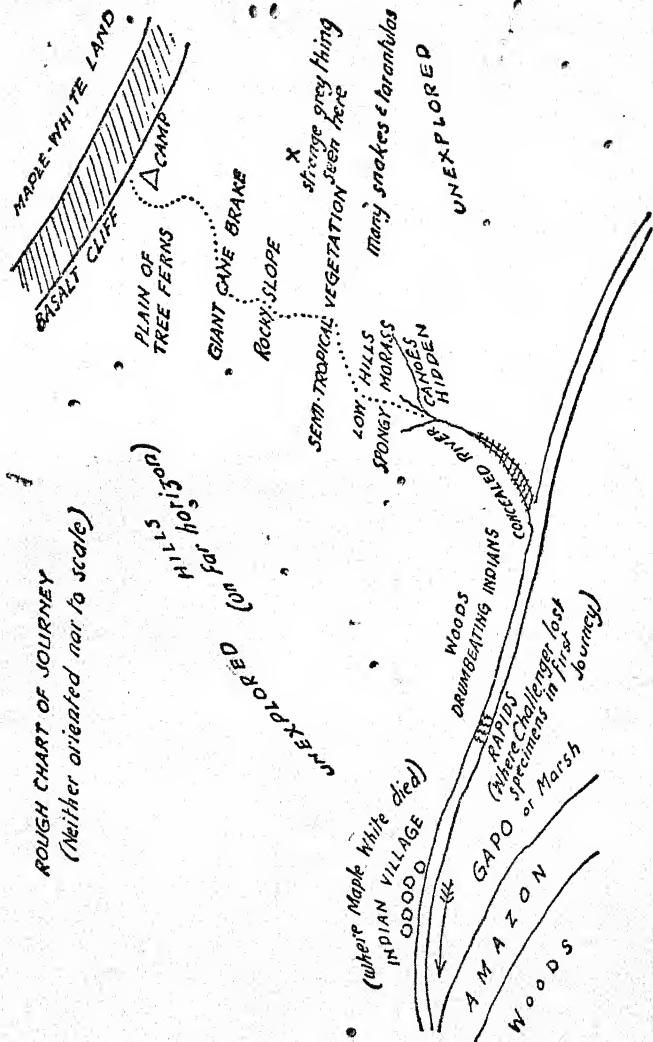 ROUGH CHART OF JOURNEY
(Neither oriented nor to scale)
MAPLE-WHITE LAND
BASALT CLIFF
CAMP
PLAIN OF
TREE FERNS
GIANT CANE BRAKE
ROCKY-SLOPE
x
strange grey thing
seen here
SEMI-TROPICAL VEGETATION
many snakes & tarantulas
UNEXPLORED
LOW HILLS
SPONGY MORASS
CANOES
HIDDEN
CONCEALED RIVER
HILLS
(on far horizon)
UNEXPLORED
WOODS
DRUMBEATING INDIANS
RAPIDS
(Where Challenger lost
specimens in first
Journey)
(where Maple White died)
INDIAN VILLAGE
GAPO or Marsh
AMAZON
WOODS